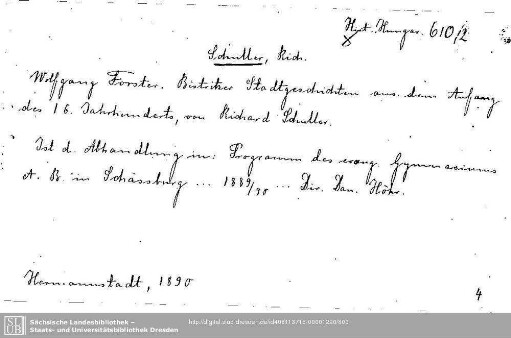 Hist. Hungar. 610,2
Schuller, Rich.
Wolfgang Forster. Bistritzer Stadtgeschichten aus dem Anfang
des 16. Jahrhunderts, von Richard Schuller.
Ist d. Abhandlung in: Programm des evang. Gymnasiums
A. B. in Schässburg ... 1889/90 ... Dir. Dan. Höhr.
Hermannstadt, 1890
4
SLUB
Sächsische Landesbibliothek –
Staats- und Universitätsbibliothek Dresden